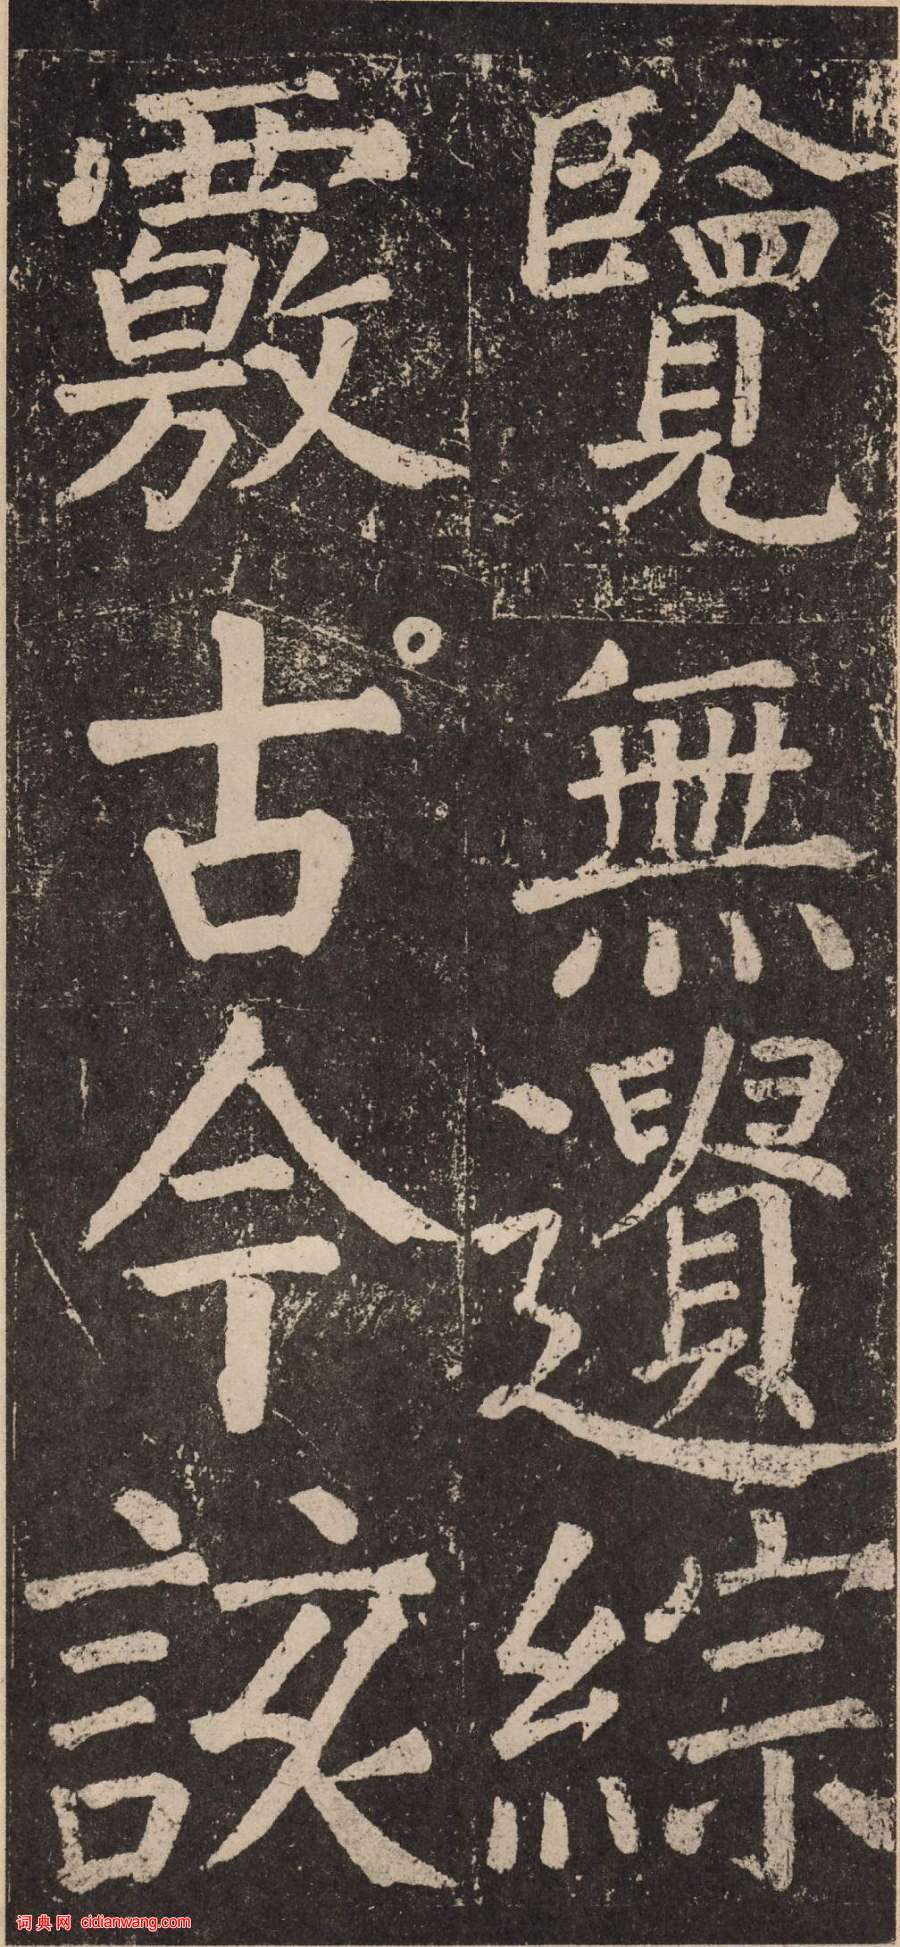 覽無遺綜
覈古今該
词典网 cidianwang.com